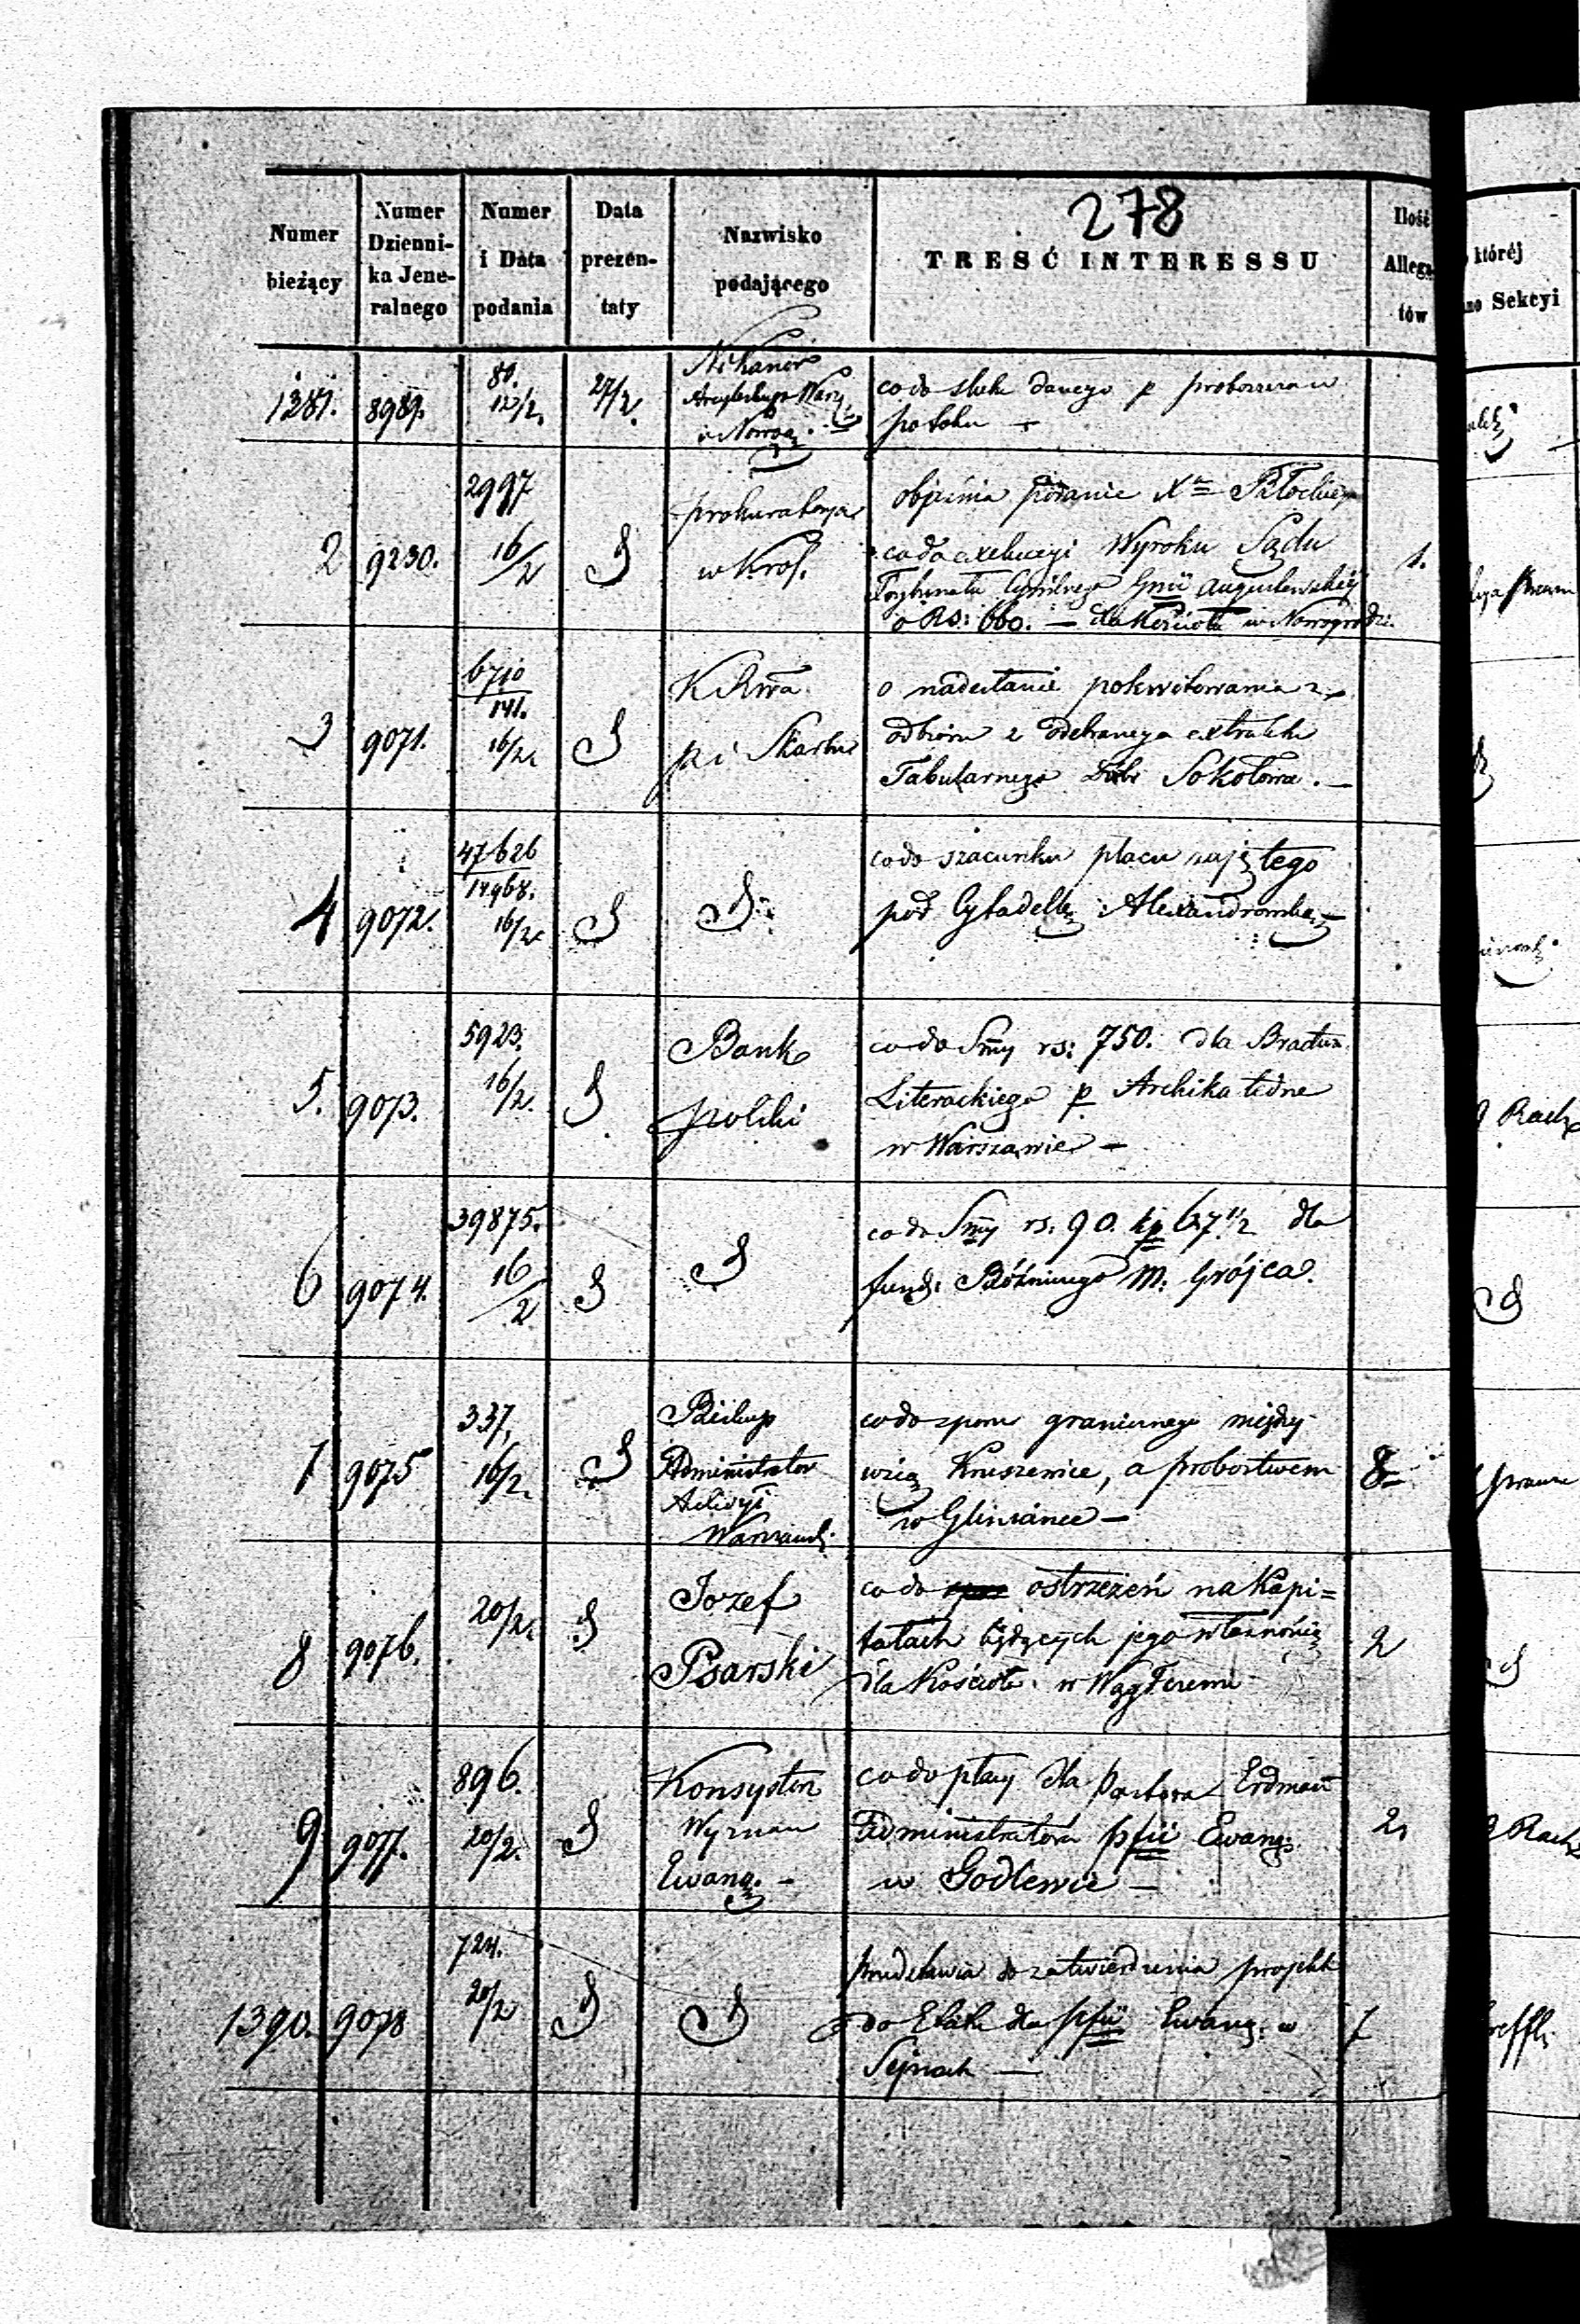 278
Numer bieżący
Numer Dzienni-ka Jene-ralnego
Numer i Data podania
Data prezen-taty
Nazwisko podającego
TREŚĆ INTERESSU
Ilość Allega-tów
1381. 8989. 80. 12/2. 27/2. Nikanor
Arcybiskup Warsz
i Nowog.
co do
danego p
2 9230. 2997 16/2 prokuratorya
w Król.
objaśnia podanie Xa Płockiego
co do exekucyi Wyroku Sądu
Trybunału Cywilnego Gnii Augustowskiéj
o Rs: 660. — dla Kościoła w Nowogrodzie.
1.
3 9071. 6710/141. 16/2. K Rwa
p i Skarbu
o nadesłanie pokwitowania z
odbioru z odebranego extraktu
Tabularnego Dóbr Sokołowa. —
4 9072. 47626/14968. 16/2
co do szacunku placu zajętego
pod Cytadellę Alexandrowską —
5. 9073. 5923. 16/2. Bank
polski
co do Smy rs: 750. dla Bractwa
Literackiego p Archikatedrze
w Warszawie —
6 9074. 39875. 16/2
co do Smy rs. 90. kp 67 1/2 dla
fund. Bóżniczego m. Grójca.
7 9075 337, 16/2. Biskup
Administrator
Archidyi
Warszawsk.
co do sporu granicznego między
wsią Kruszewice, a probostwem
w Gliniance —
8
8 9076. 20/2. Jozef
Psarski
co do ostrzeżeń na Kapi=
tałach będących jego własnością
dla Kościoła w Wągłczewie
2
9 9077. 896. 20/2. Konsystorz
Wyznan
Ewang. —
co do płacy dla Pastora Erdman
Administratora pfii Ewang.
w Godlewie —
2.
1390. 9078 724. 20/2
przedstawia do zatwierdzenia projekt
do Etatu dla pfii Ewang. w
Sejnach —
1
któréj
no Sekcyi